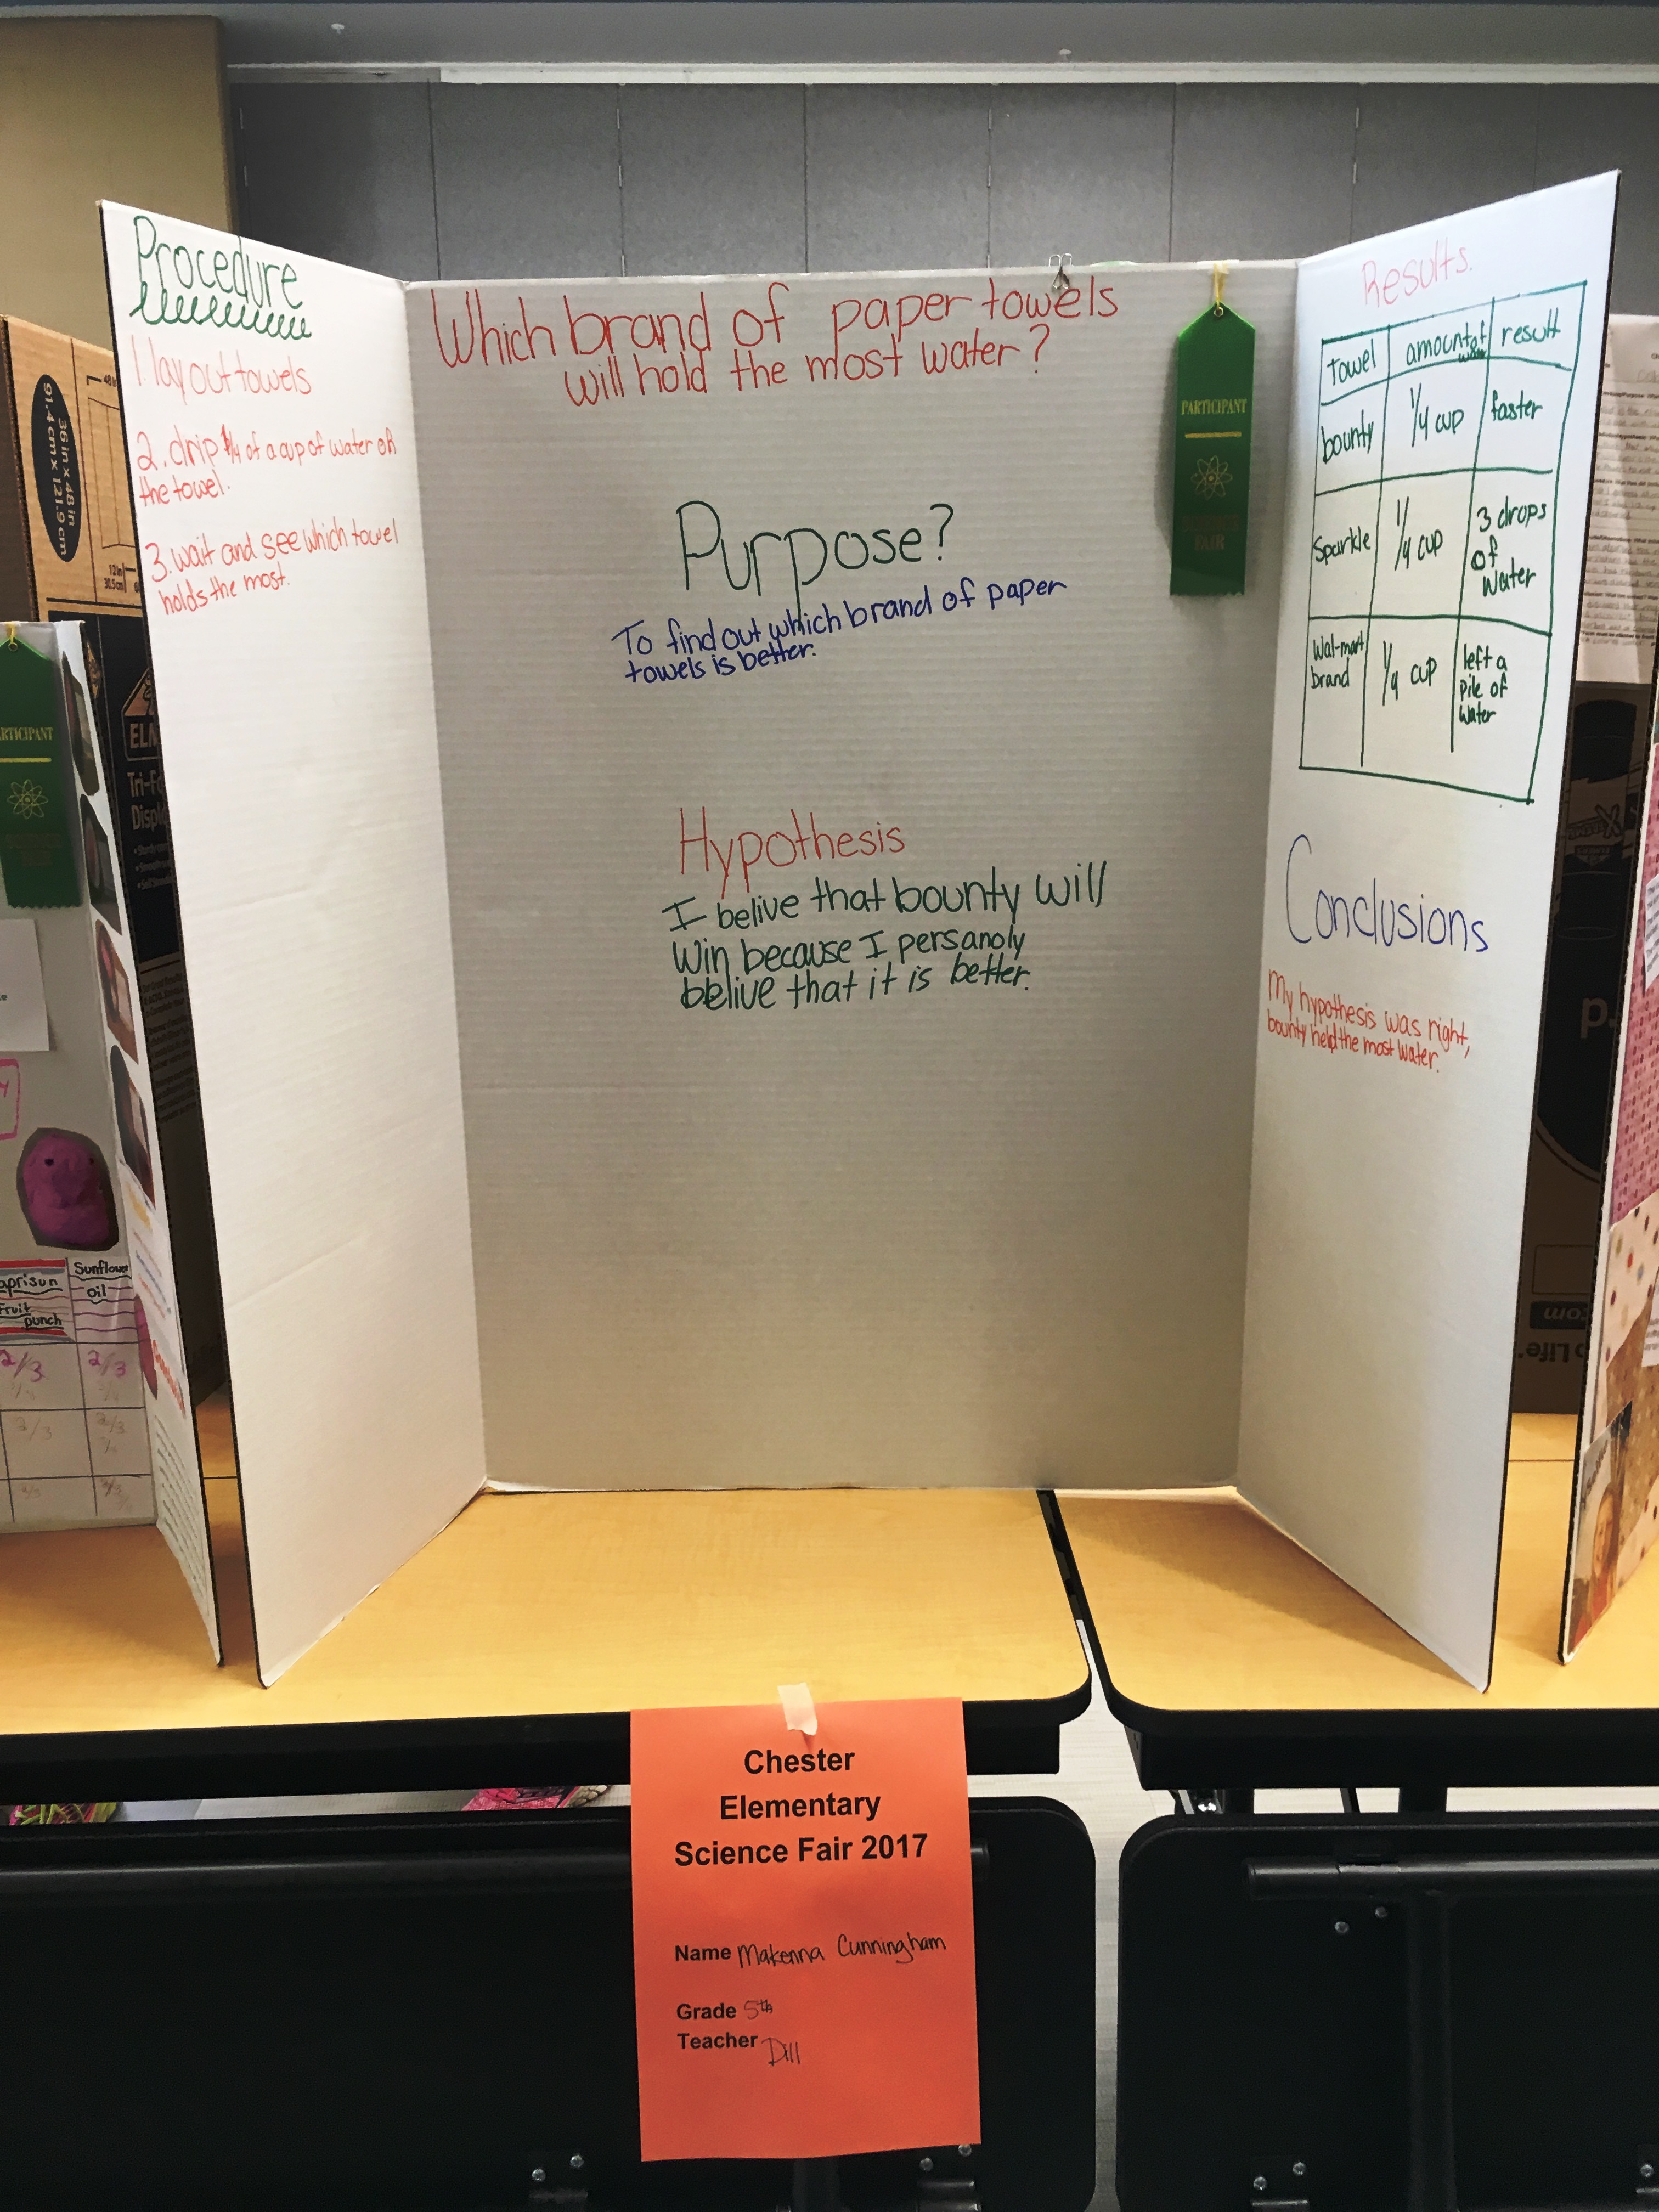 Procedure
1. lay out towels
2. drip 1/4 of a cup of water on
the towel.
3. wait and see which towel
holds the most.
Which brand of paper towels
will hold the most water?
PARTICIPANT
FAIR
Purpose?
To find out which brand of paper
towels is better.
Hypothesis
I belive that bounty will
win because I persanoly
belive that it is better.
Results.
Towel amount of water result
bounty 1/4 cup faster
Sparkle 1/4 cup 3 drops
of
water
Wal-mart
brand 1/4 cup left a
pile of
water
Conclusions
My hypothesis was right,
bounty held the most water.
Chester
Elementary
Science Fair 2017
Name Makenna Cunningham
Grade 5th
Teacher Dill
36 in x 48 in
91.4 cm x 121.9 cm
12 in
30.5 cm
ELM
Tri-Fo
Displ
ARTICIPANT
aprisun
Fruit
punch
Sunflower
oil
2/3 2/3